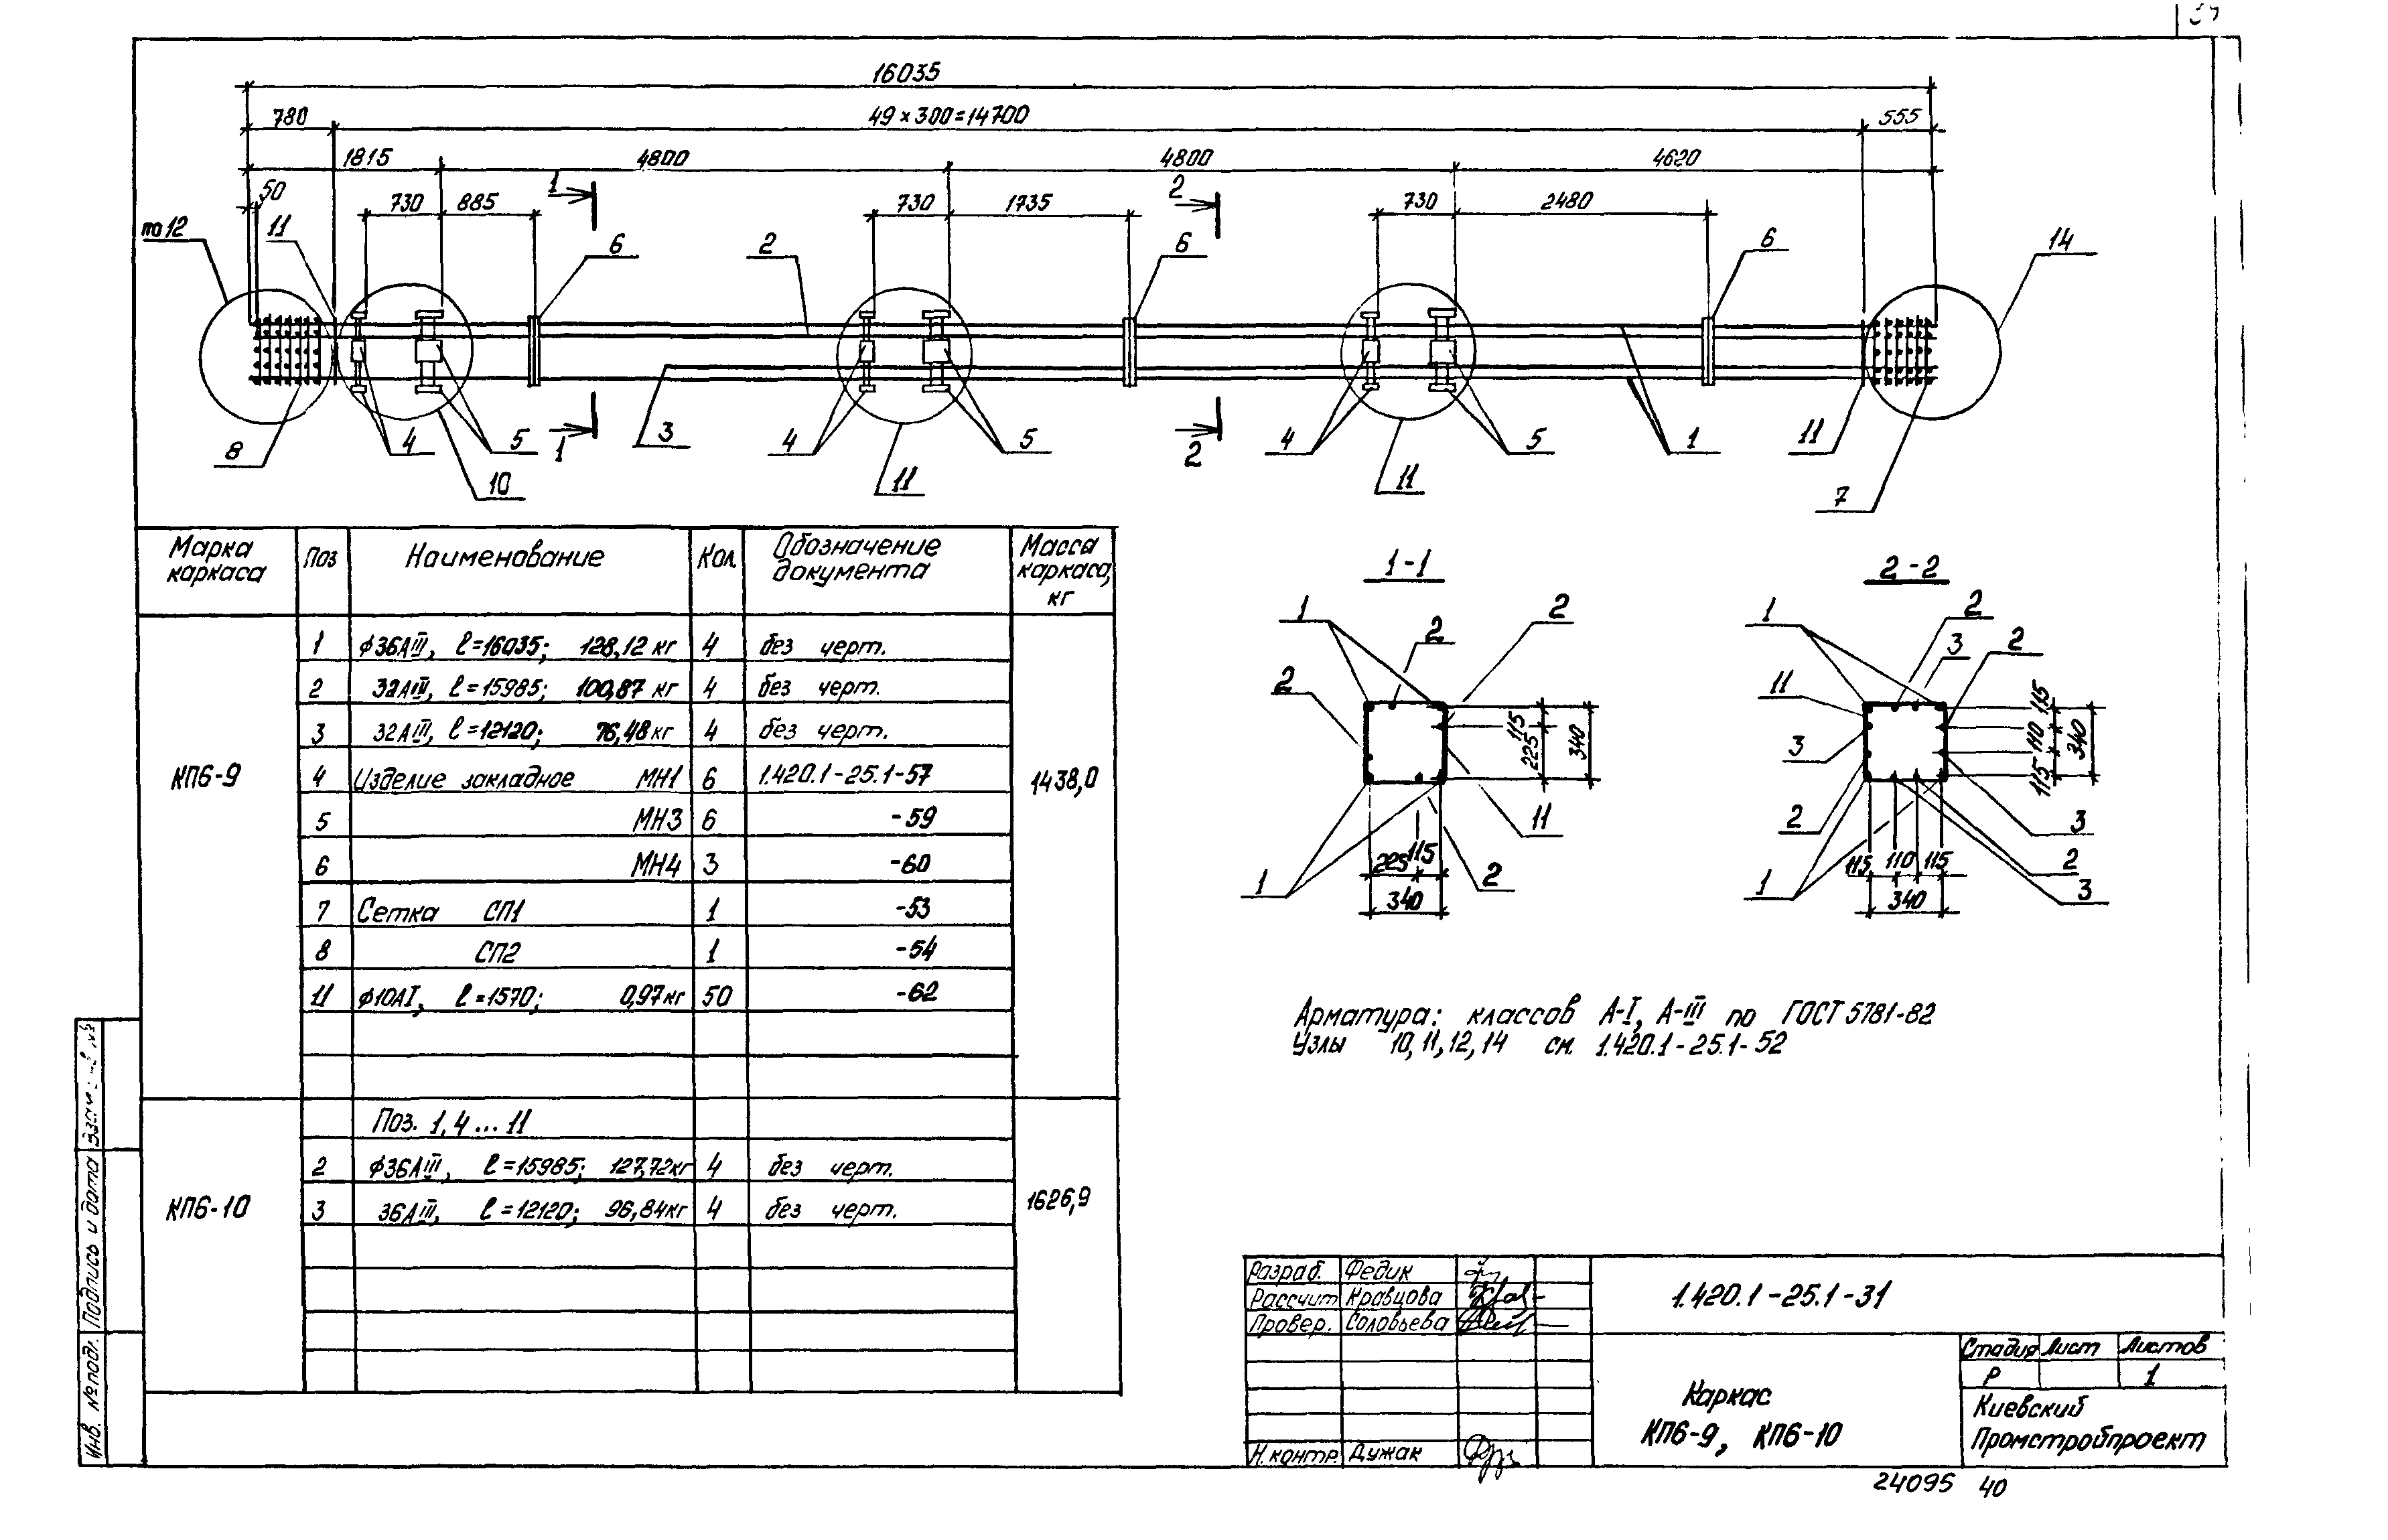 16035
780
49 × 300 = 14700
555
1815
4800
4800
4620
50
730
885
1
730
1735
2
730
2480
по 12
11
6
2
6
6
14
8
4
10
5
1
3
4
11
5
2
4
11
5
1
11
7
Марка каркаса
Поз
Наименование
Кол.
Обозначение документа
Масса каркаса, кг
КП6-9
1 ϕ36АIII, ℓ=16035; 128,12 кг 4 без черт.
2 32АIII, ℓ=15985; 100,87 кг 4 без черт.
3 32АIII, ℓ=12120; 76,48 кг 4 без черт.
4 Изделие закладное МН1 6 1.420.1-25.1-57
5 МН3 6 -59
6 МН4 3 -60
7 Сетка СП1 1 -53
8 СП2 1 -54
11 ϕ10АI, ℓ=1570; 0,97 кг 50 -62
1438,0
КП6-10
Поз. 1, 4 ... 11
2 ϕ36АIII, ℓ=15985; 127,72 кг 4 без черт.
3 36АIII, ℓ=12120; 96,84 кг 4 без черт.
1626,9
1-1
1
2
2
2
115
225
340
11
225
115
340
1
2
2-2
1
2
3
2
11
3
115
110
115
340
2
3
115
110
115
2
1
340
3
Арматура: классов А-I, А-III по ГОСТ 5781-82
Узлы 10, 11, 12, 14 см. 1.420.1-25.1-52
Разраб. Федик
Рассчит. Кравцова
Провер. Соловьева
Н. контр. Дужак
1.420.1-25.1-31
Каркас
КП6-9, КП6-10
Стадия Лист Листов
Р 1
Киевский
Промстройпроект
24095 40
Инв. № подл.
Подпись и дата